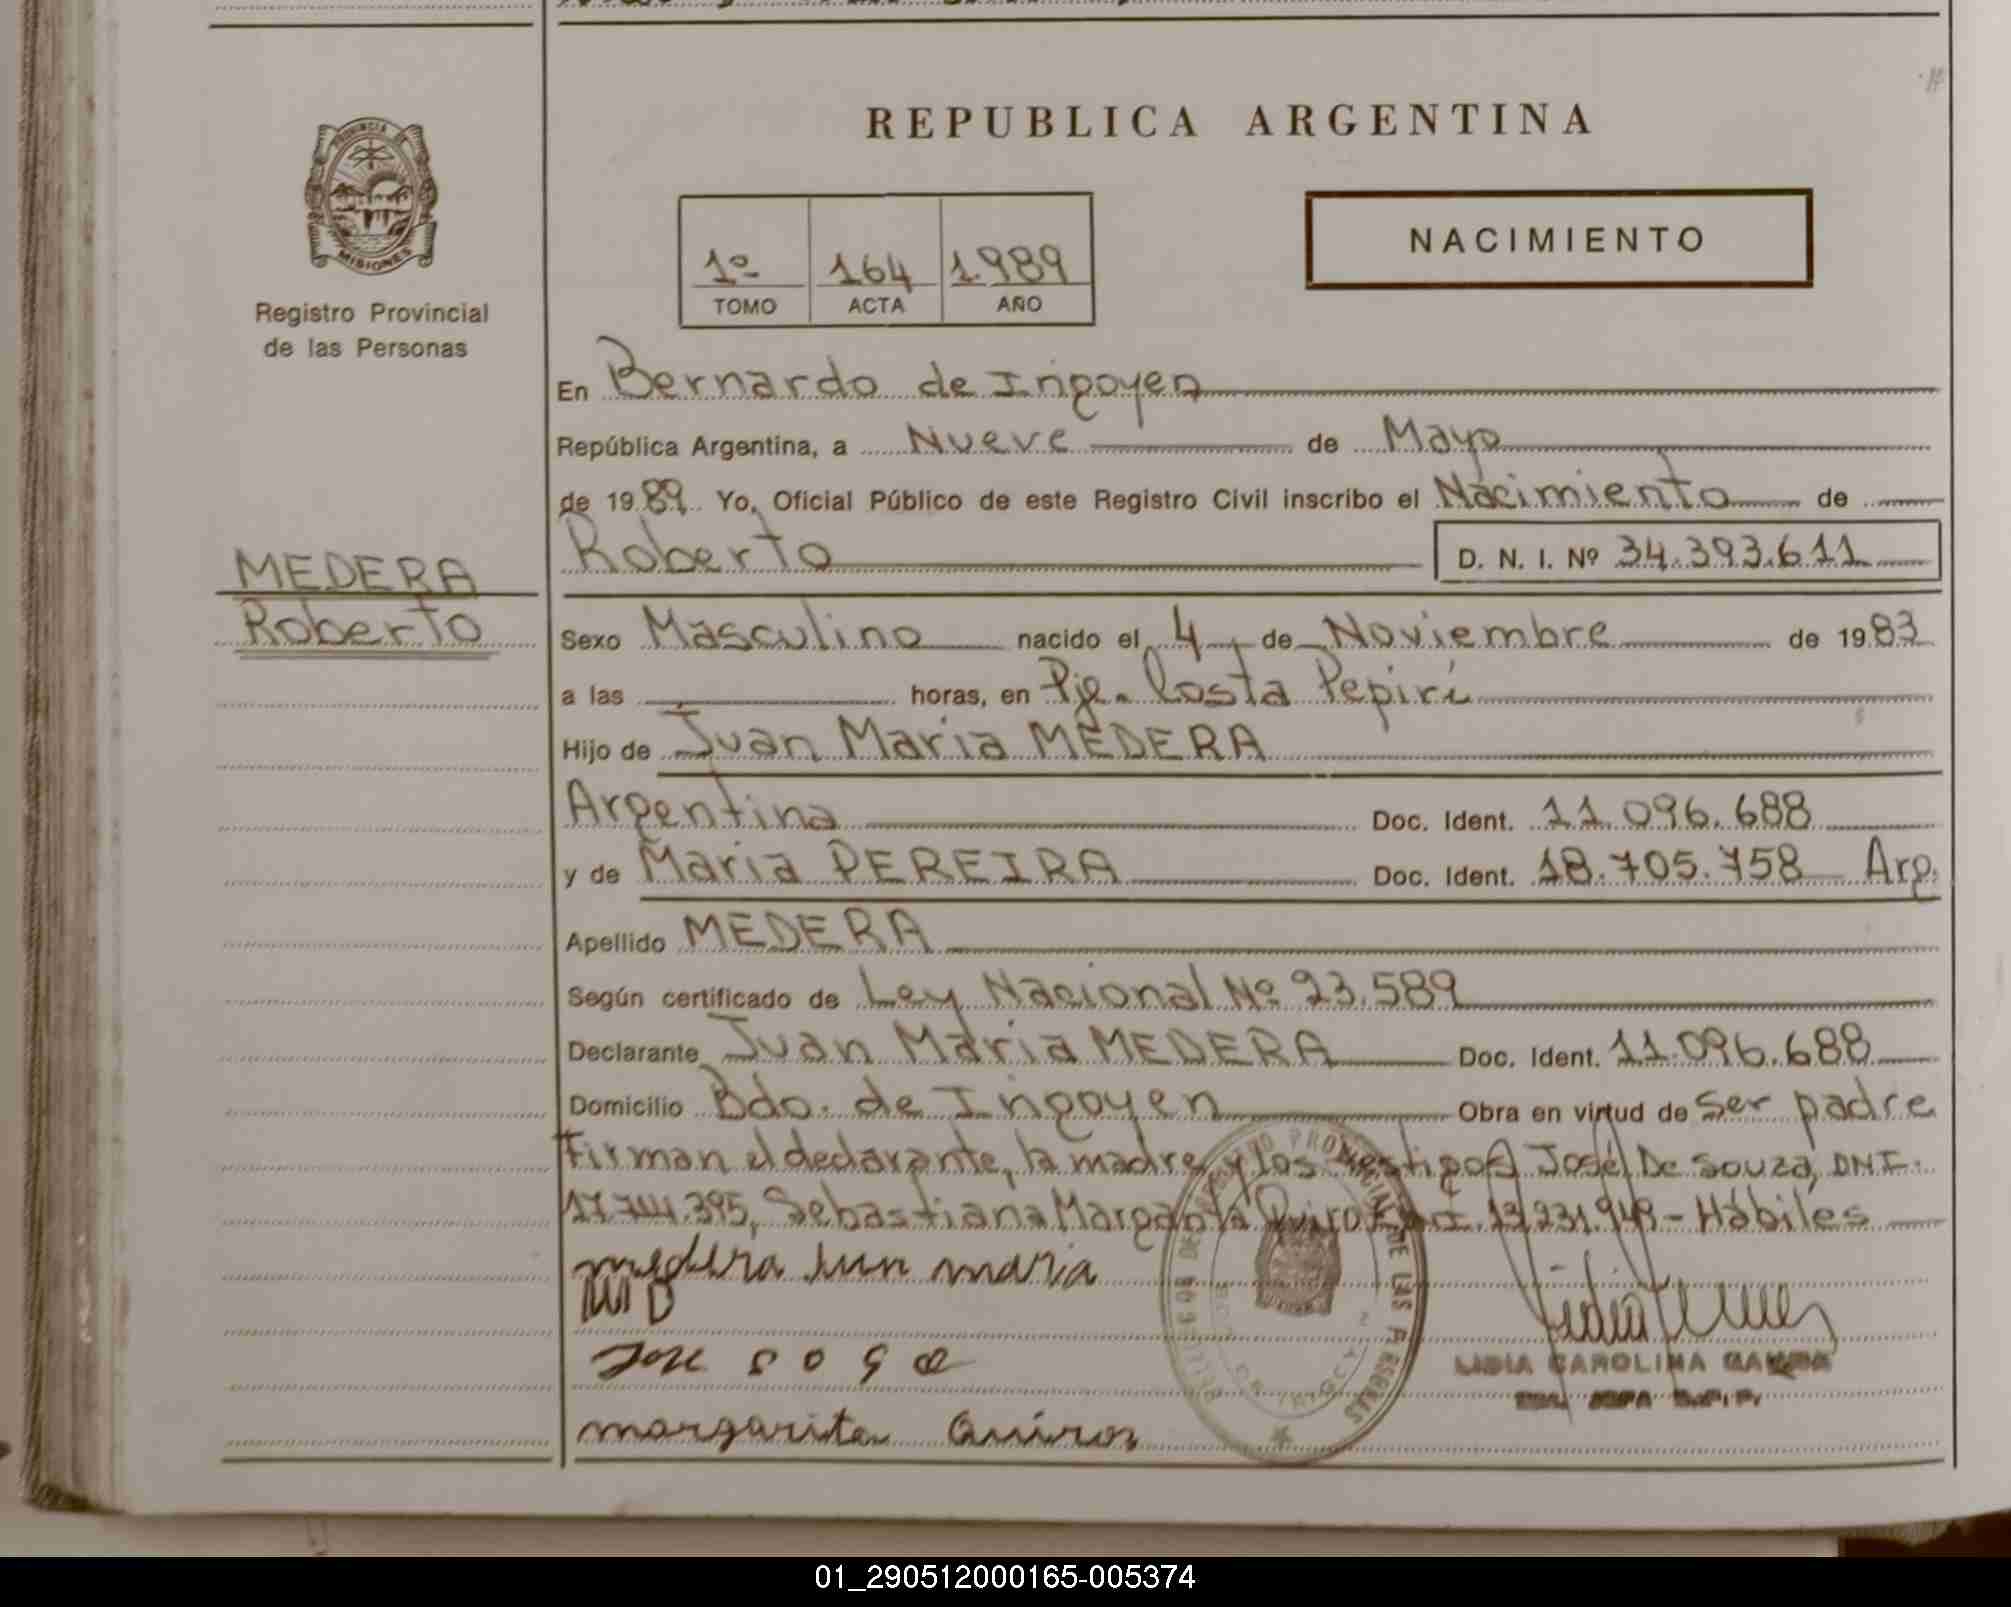 REPUBLICA ARGENTINA
PROVINCIA
MISIONES
Registro Provincial
de las Personas
1º 164 1.989
TOMO ACTA AÑO
NACIMIENTO
En Bernardo de Irigoyen
República Argentina, a Nueve de Mayo
de 1989. Yo, Oficial Público de este Registro Civil inscribo el Nacimiento de
Roberto D. N. I. Nº 34.393.611
MEDERA
Roberto
Sexo Masculino nacido el 4 de Noviembre de 1983
a las horas, en Pje. Costa Pepirí
Hijo de Juan Maria MEDERA
Argentina Doc. Ident. 11.096.688
y de Maria PEREIRA Doc. Ident. 18.705.758 Arg.
Apellido MEDERA
Según certificado de Ley Nacional Nº 23.589
Declarante Juan Maria MEDERA Doc. Ident. 11.096.688
Domicilio Bdo. de Irigoyen Obra en virtud de ser padre
Firman el declarante, la madre y los testigos José De Souza, DNI.
Sebastiana Margarita Quiroz - Hábiles
medera Juan maria
MP
José
margarita Quiroz
LIDIA CAROLINA
01_290512000165-005374